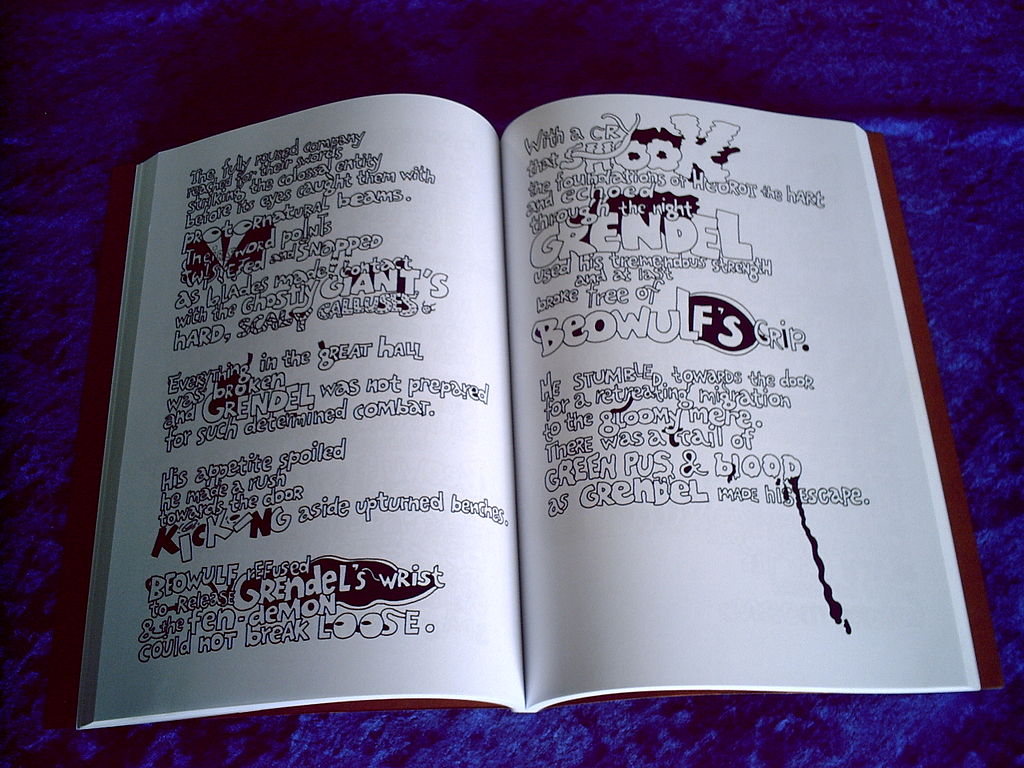 The fully roused company
reached for their swords
striking the colossal entity
before its eyes caught them with
PROTORNATURAL beams.
The sword points
quivered and SNAPPED
as blades made contact
with the Ghostly GIANT'S
HARD, SCALY CALLUSES.
Everything in the GREAT HALL
was broken
and GRENDEL was not prepared
for such determined combat.
His appetite spoiled
he made a rush
towards the door
KICKING aside upturned benches.
BEOWULF REFUSED
to RELEASE GRENDEL'S WRIST
& the fen-demon
could not break LOOSE.
With a CRY
that SHOOK
the foundations of HEOROT the hart
and echoed
through the night
GRENDEL
used his tremendous strength
and at last
broke free of
BEOWULF'S GRIP.
HE STUMBLED towards the door
for a retreating migration
to the gloomy mere.
THERE was a trail of
GREEN PUS & blOOD
as GRENDEL MADE his ESCAPE.